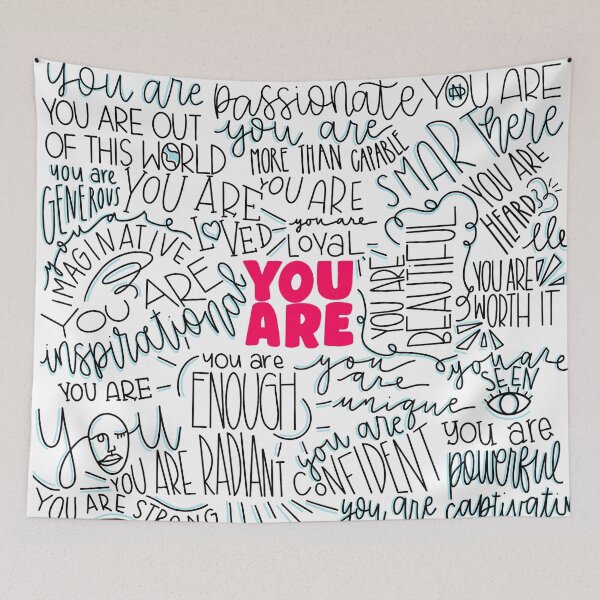 you are passionate YOU ARE
YOU ARE OUT
OF THIS WORLD
you are
MORE THAN CAPABLE
SMART
here
you are
GENEROUS
YOU ARE
LOVED
YOU ARE
you are
LOYAL
YOU ARE
HEARD
you are
IMAGINATIVE
YOU ARE
inspirational
YOU
ARE
YOU ARE
BEAUTIFUL
YOU ARE
WORTH IT
YOU ARE
you are
ENOUGH
you
are
unique
you are
SEEN
you
YOU ARE RADIANT
you are
CONFIDENT
you are
powerful
YOU ARE STRONG
you are captivatin